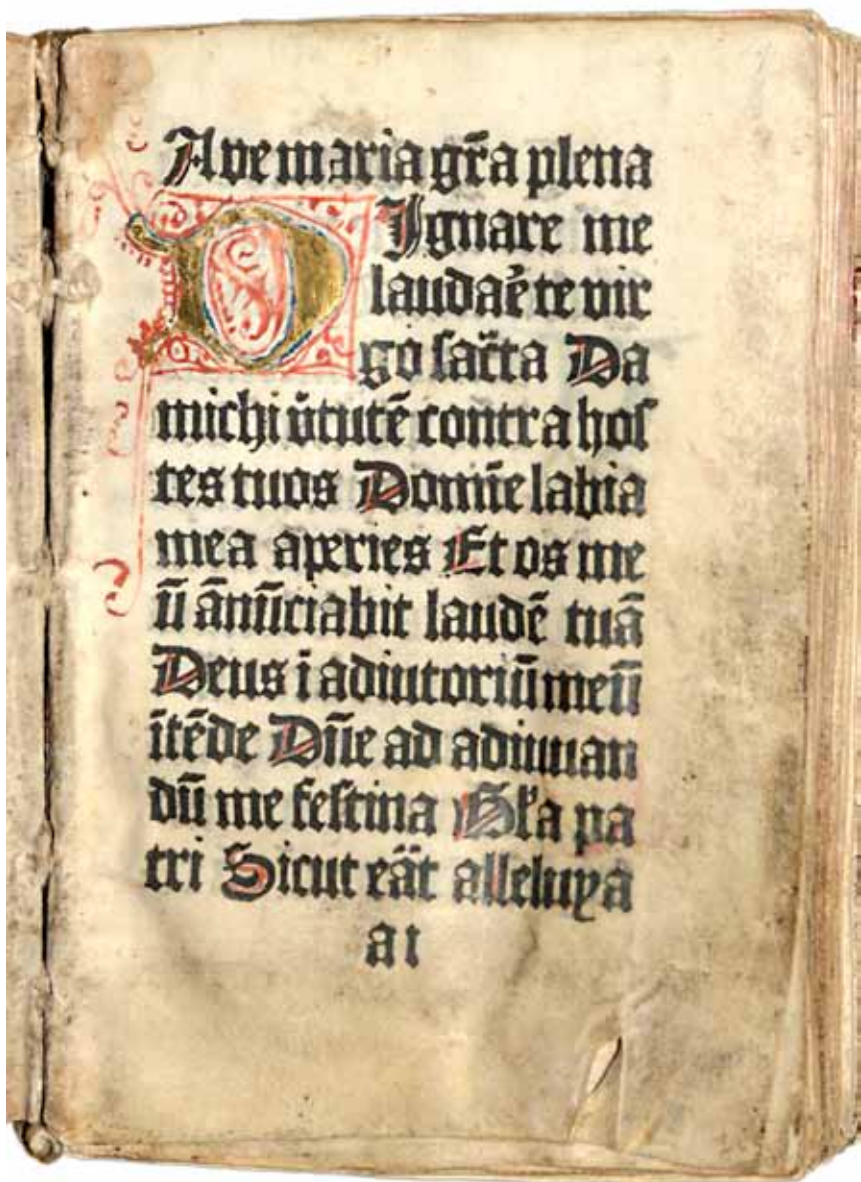 Ave maria gr̄a plena
DIgnare me
laudar̄e te vir
go sāc̄ta Da
michi v̄tutē contra hoſ
tes tuos Domīe labia
mea aperies Et os me
ū ānūciabit laudē tuā
Deus ī adiutoriū meū
ītēde Dn̄e ad adiuuan
dū me feſtina Gl̄ia pa
tri Sicut erāt alleluya
a i